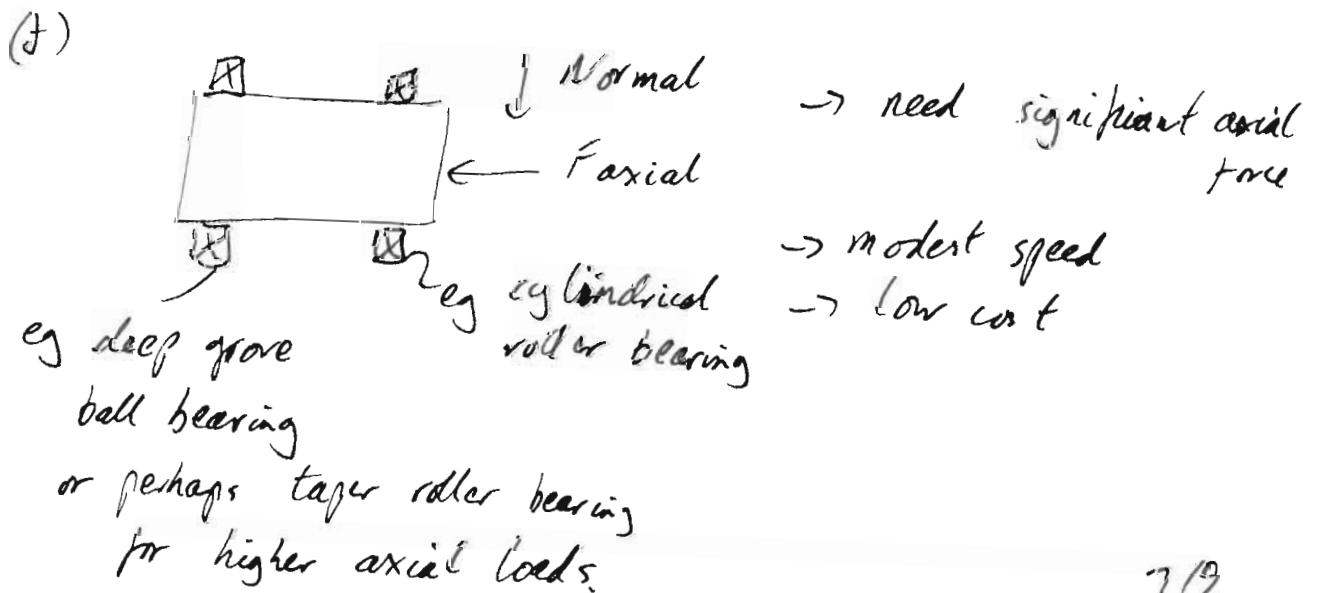 (f)
Normal
→ need significant axial
force
← Faxial
→ modest speed
→ low cost
eg cylindrical
roller bearing
eg deep grove
ball bearing
or perhaps taper roller bearing
for higher axial loads.